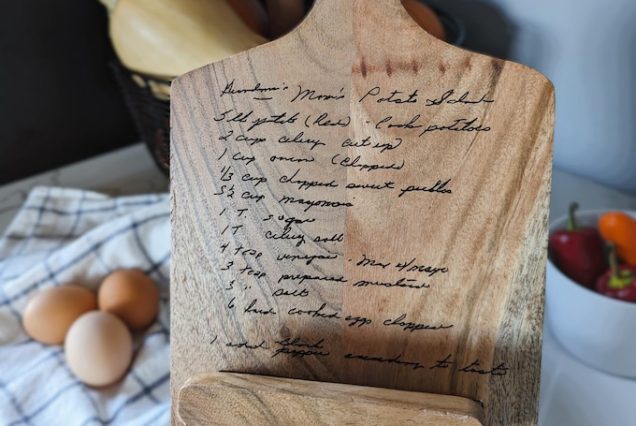 Grandma's Mom's Potato Salad
5 lb potato (Red) - Cook potatoes
2 cup celery cut up
1 cup onion (Chopped)
1/3 cup chopped sweet pickles
3 1/2 cup mayonaise
1 T. sugar
1 T celery salt
4 tsp vinegar - Mix w/mayo
3 tsp prepared mustard
3 " salt
6 hard cooked egg chopped
black
pepper according to taste